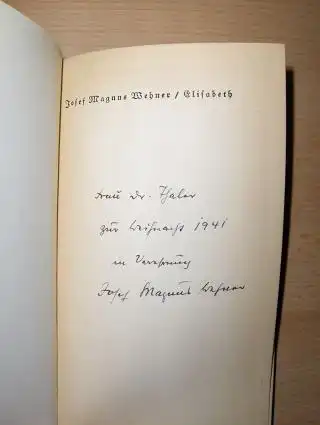 Josef Magnus Wehner / Elisabeth
Frau Dr. Thaler
zur Weihnacht 1941
in Verehrung
Josef Magnus Wehner